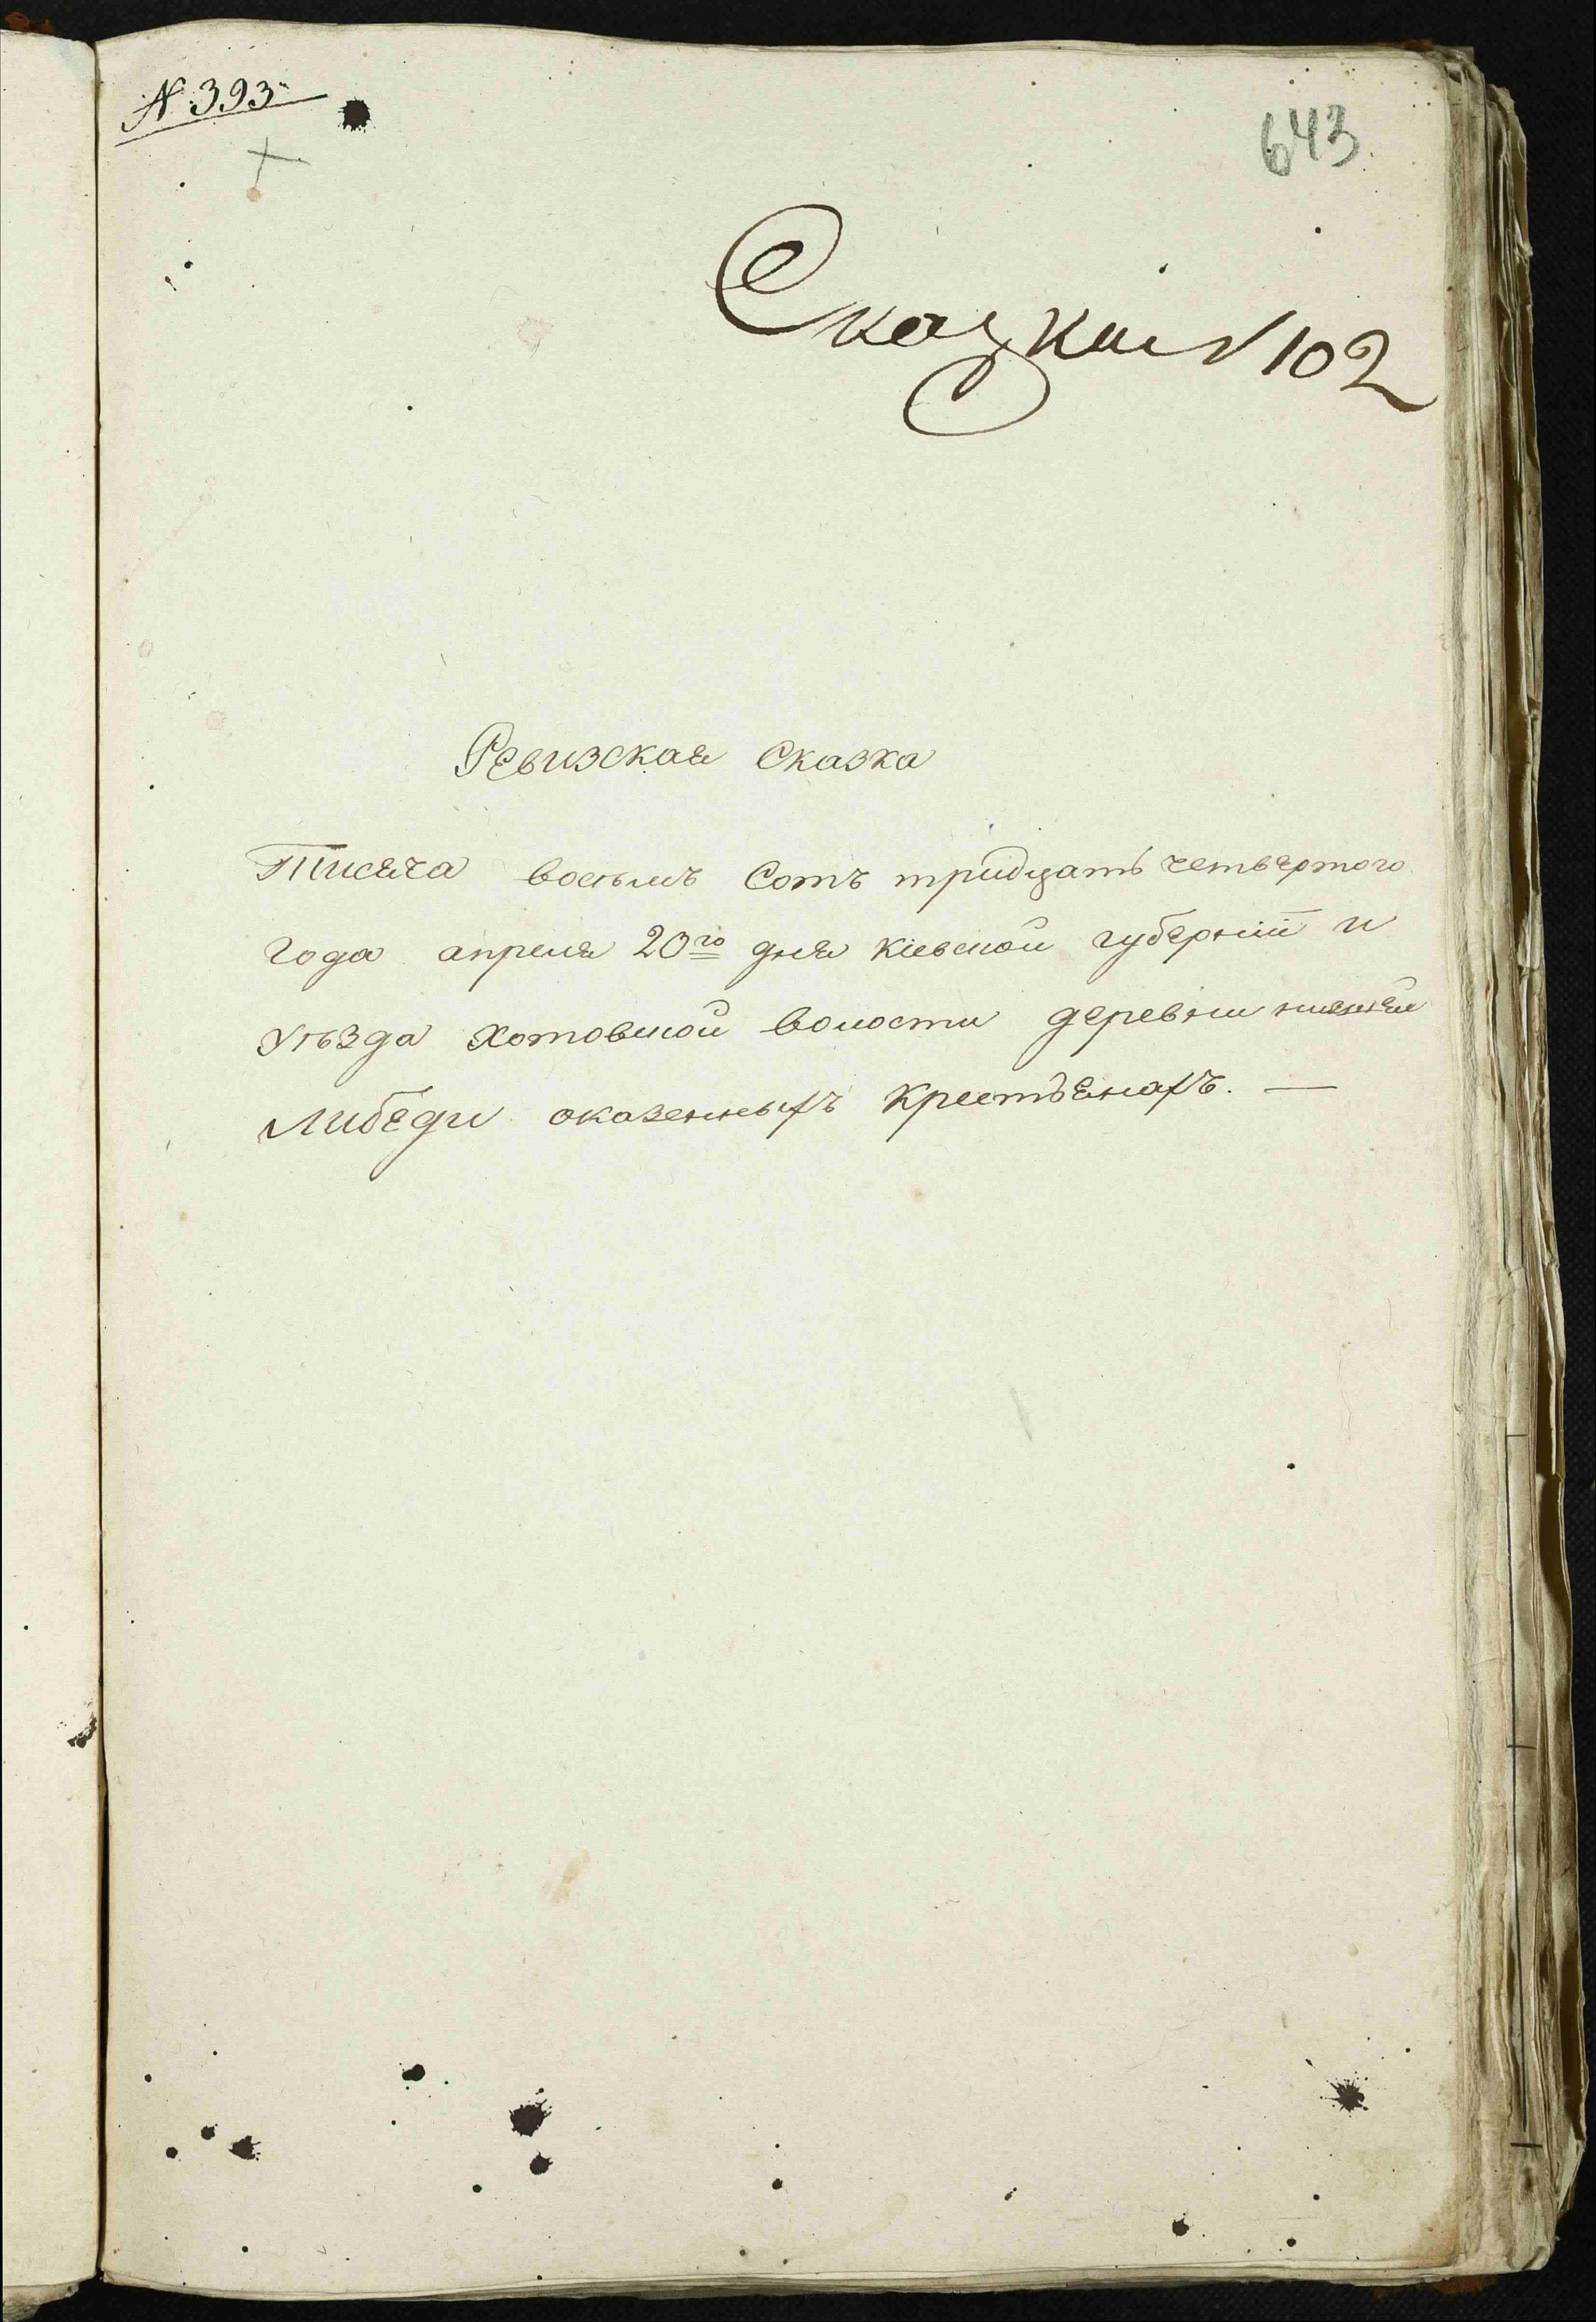 N 393
643
Сказки N 102
Ревизская Сказка
Тисяча восъмъ Сотъ тридцать четвертого
года апреля 20го дня Кіевской губерніи и
уѣзда Хотовской волости деревни нижней
Либеди оказенныхъ Крестьянахъ. —